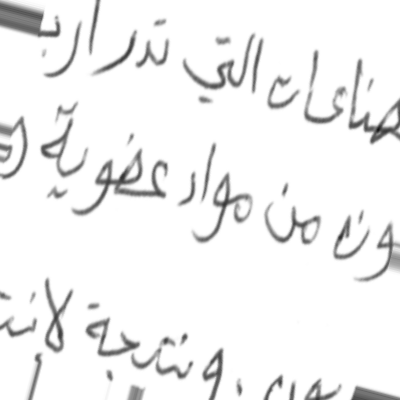 صناعات التي تدر ارب
ون من مواد عضوية
ون. ونتيجة لانت